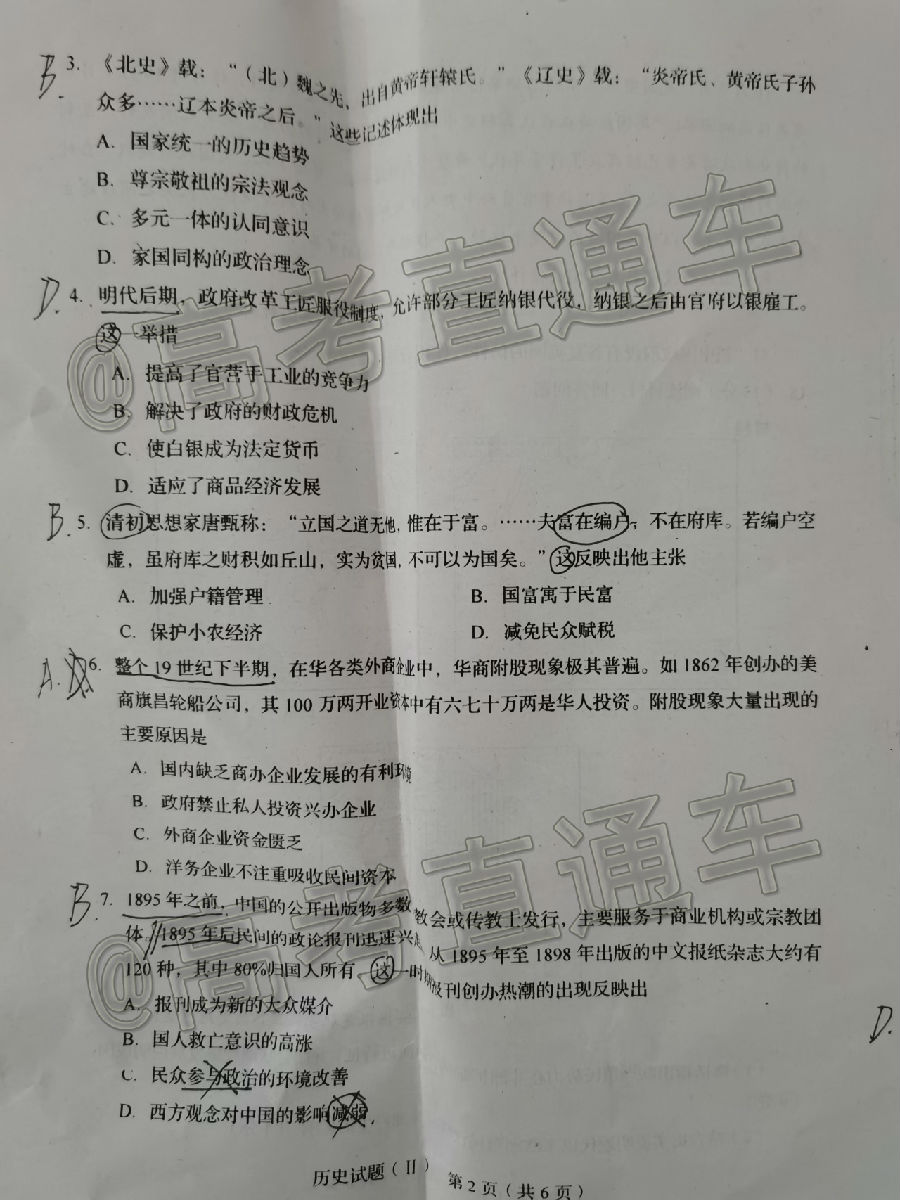 B. 3. 《北史》载：“（北）魏之先，出自黄帝轩辕氏。”《辽史》载：“炎帝氏、黄帝氏子孙
众多……辽本炎帝之后。”这些记述体现出
A. 国家统一的历史趋势
B. 尊宗敬祖的宗法观念
C. 多元一体的认同意识
D. 家国同构的政治理念
D. 4. 明代后期，政府改革工匠服役制度，允许部分工匠纳银代役，纳银之后由官府以银雇工。
这一举措
A. 提高了官营手工业的竞争力
B. 解决了政府的财政危机
C. 使白银成为法定货币
D. 适应了商品经济发展
B. 5. 清初思想家唐甄称：“立国之道无他，惟在于富。……夫富在编户，不在府库。若编户空
虚，虽府库之财积如丘山，实为贫国，不可以为国矣。”这反映出他主张
A. 加强户籍管理 B. 国富寓于民富
C. 保护小农经济 D. 减免民众赋税
A. 6. 整个19世纪下半期，在华各类外商企业中，华商附股现象极其普遍。如1862年创办的美
商旗昌轮船公司，其100万两开业资本中有六七十万两是华人投资。附股现象大量出现的
主要原因是
A. 国内缺乏商办企业发展的有利环境
B. 政府禁止私人投资兴办企业
C. 外商企业资金匮乏
D. 洋务企业不注重吸收民间资本
B. 7. 1895年之前，中国的公开出版物多数 教会或传教士发行，主要服务于商业机构或宗教团
体。1895年后民间的政论报刊迅速兴起 从1895年至1898年出版的中文报纸杂志大约有
120种，其中80%归国人所有。这一时期报刊创办热潮的出现反映出
A. 报刊成为新的大众媒介
B. 国人救亡意识的高涨
C. 民众参与政治的环境改善
D. 西方观念对中国的影响减弱
D.
历史试题（II） 第2页（共6页）
@高考直通车
@高考直通车